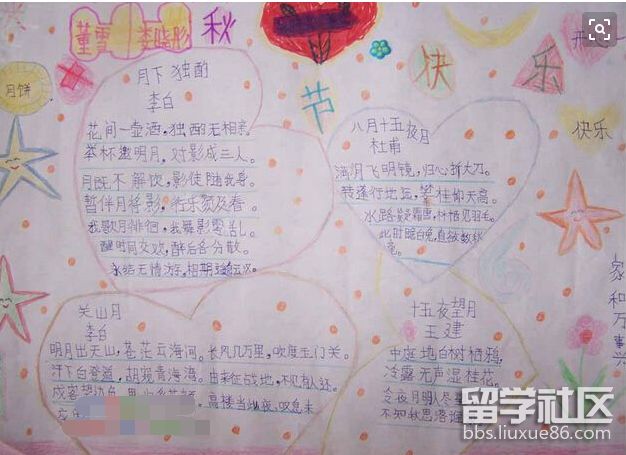 董雪
李晓彤
秋
节
快
乐
开
月饼
快乐
家和万事兴
月下独酌
李白
花间一壶酒,独酌无相亲。
举杯邀明月,对影成三人。
月既不解饮,影徒随我身。
暂伴月将影,行乐须及春。
我歌月徘徊,我舞影零乱。
醒时同交欢,醉后各分散。
永结无情游,相期邈云汉。
八月十五夜月
杜甫
满月飞明镜,归心折大刀。
转蓬行地远,攀桂仰天高。
水路疑霜雪,林栖见羽毛。
此时瞻白兔,直欲数秋
毫。
关山月
李白
明月出天山,苍茫云海间。长风几万里,吹度玉门关。
汉下白登道,胡窥青海湾。由来征战地,不见有人还。
高楼当此夜,叹息未
十五夜望月
王建
中庭地白树栖鸦,
冷露无声湿桂花。
今夜月明人尽
不知秋思落谁
留学社区
bbs.liuxue86.com